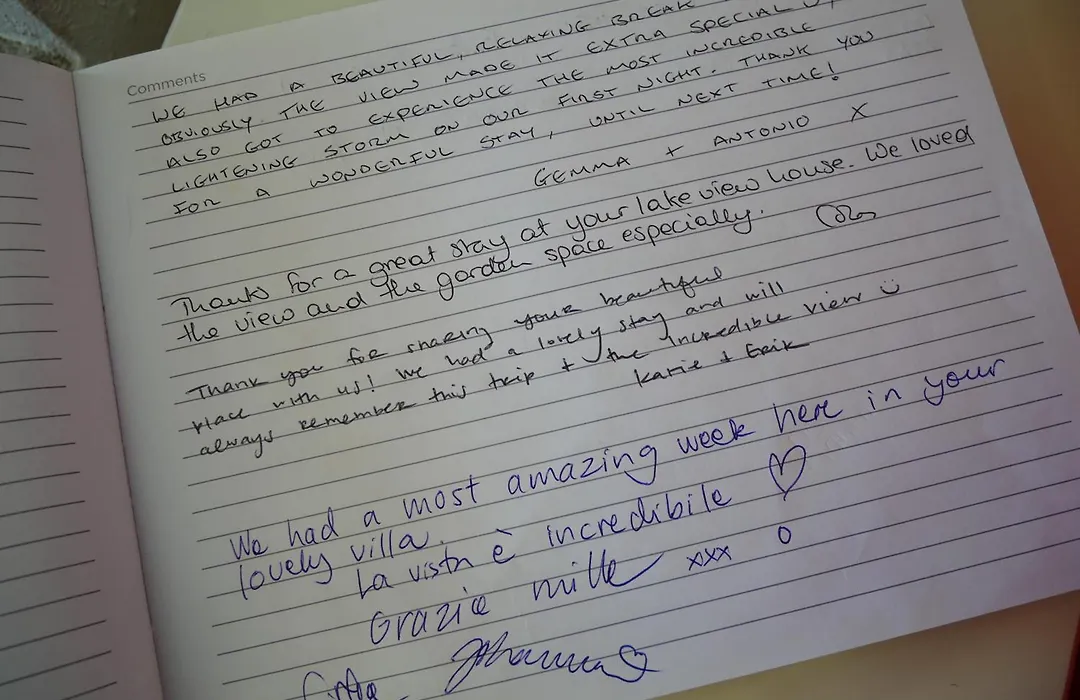 Comments
WE HAD A BEAUTIFUL, RELAXING BREAK
OBVIOUSLY THE VIEW MADE IT EXTRA SPECIAL
ALSO GOT TO EXPERIENCE THE MOST INCREDIBLE
LIGHTENING STORM ON OUR FIRST NIGHT. THANK YOU
FOR A WONDERFUL STAY, UNTIL NEXT TIME!
GEMMA + ANTONIO X
Thanks for a great stay at your lake view house. We loved
the view and the garden space especially.
Thank you for sharing your beautiful
place with us! We had a lovely stay and will
always remember this trip + the incredible view
Katie + Erik
We had a most amazing week here in your
lovely villa.
La vista è incredibile
Grazie mille xxx o
Johanna